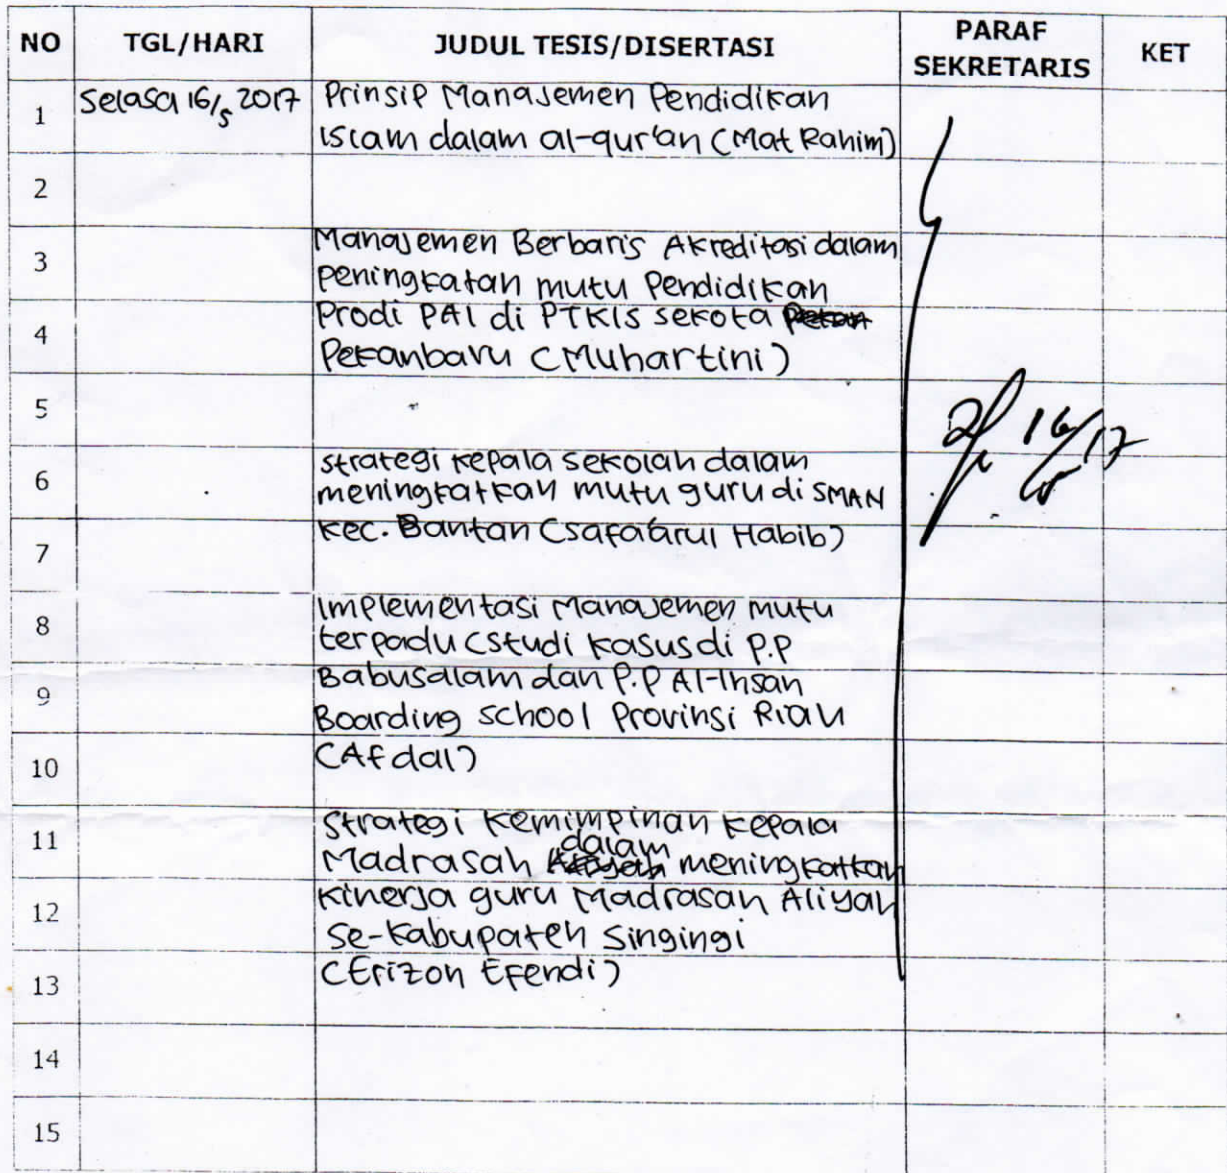 NO TGL/HARI JUDUL TESIS/DISERTASI PARAF SEKRETARIS KET
1 Selasa 16/5 2017 Prinsip Manajemen Pendidikan
Islam dalam al-qur'an (Mat Rahim)
2
3 Manajemen Berbaris Akreditasi dalam
peningkatan mutu Pendidikan
4 Prodi PAI di PTKIS sekota
Pekanbaru (Muhartini)
5
6 strategi kepala sekolah dalam
meningkatkan mutu guru di SMAN
7 kec. Bantan (Safa'arul Habib)
8 Implementasi Manajemen mutu
terpadu (studi kasus di P.P
9 Babusalam dan P.P Al-Ihsan
Boarding school Provinsi Riau
10 (Afdal)
11 strategi kemimpinan kepala
Madrasah dalam meningkatkan
12 kinerja guru Madrasah Aliyah
se-kabupaten singingi
13 (Erizon Efendi)
14
15
16/5 17